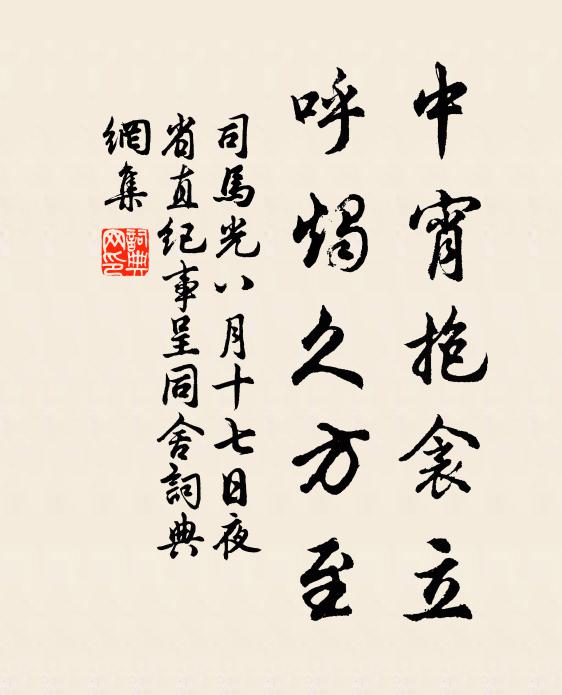 中宵抱衾立
呼燭久方至
司馬光八月十七日夜
省直紀事呈同舍詞典
網集
詞典網印